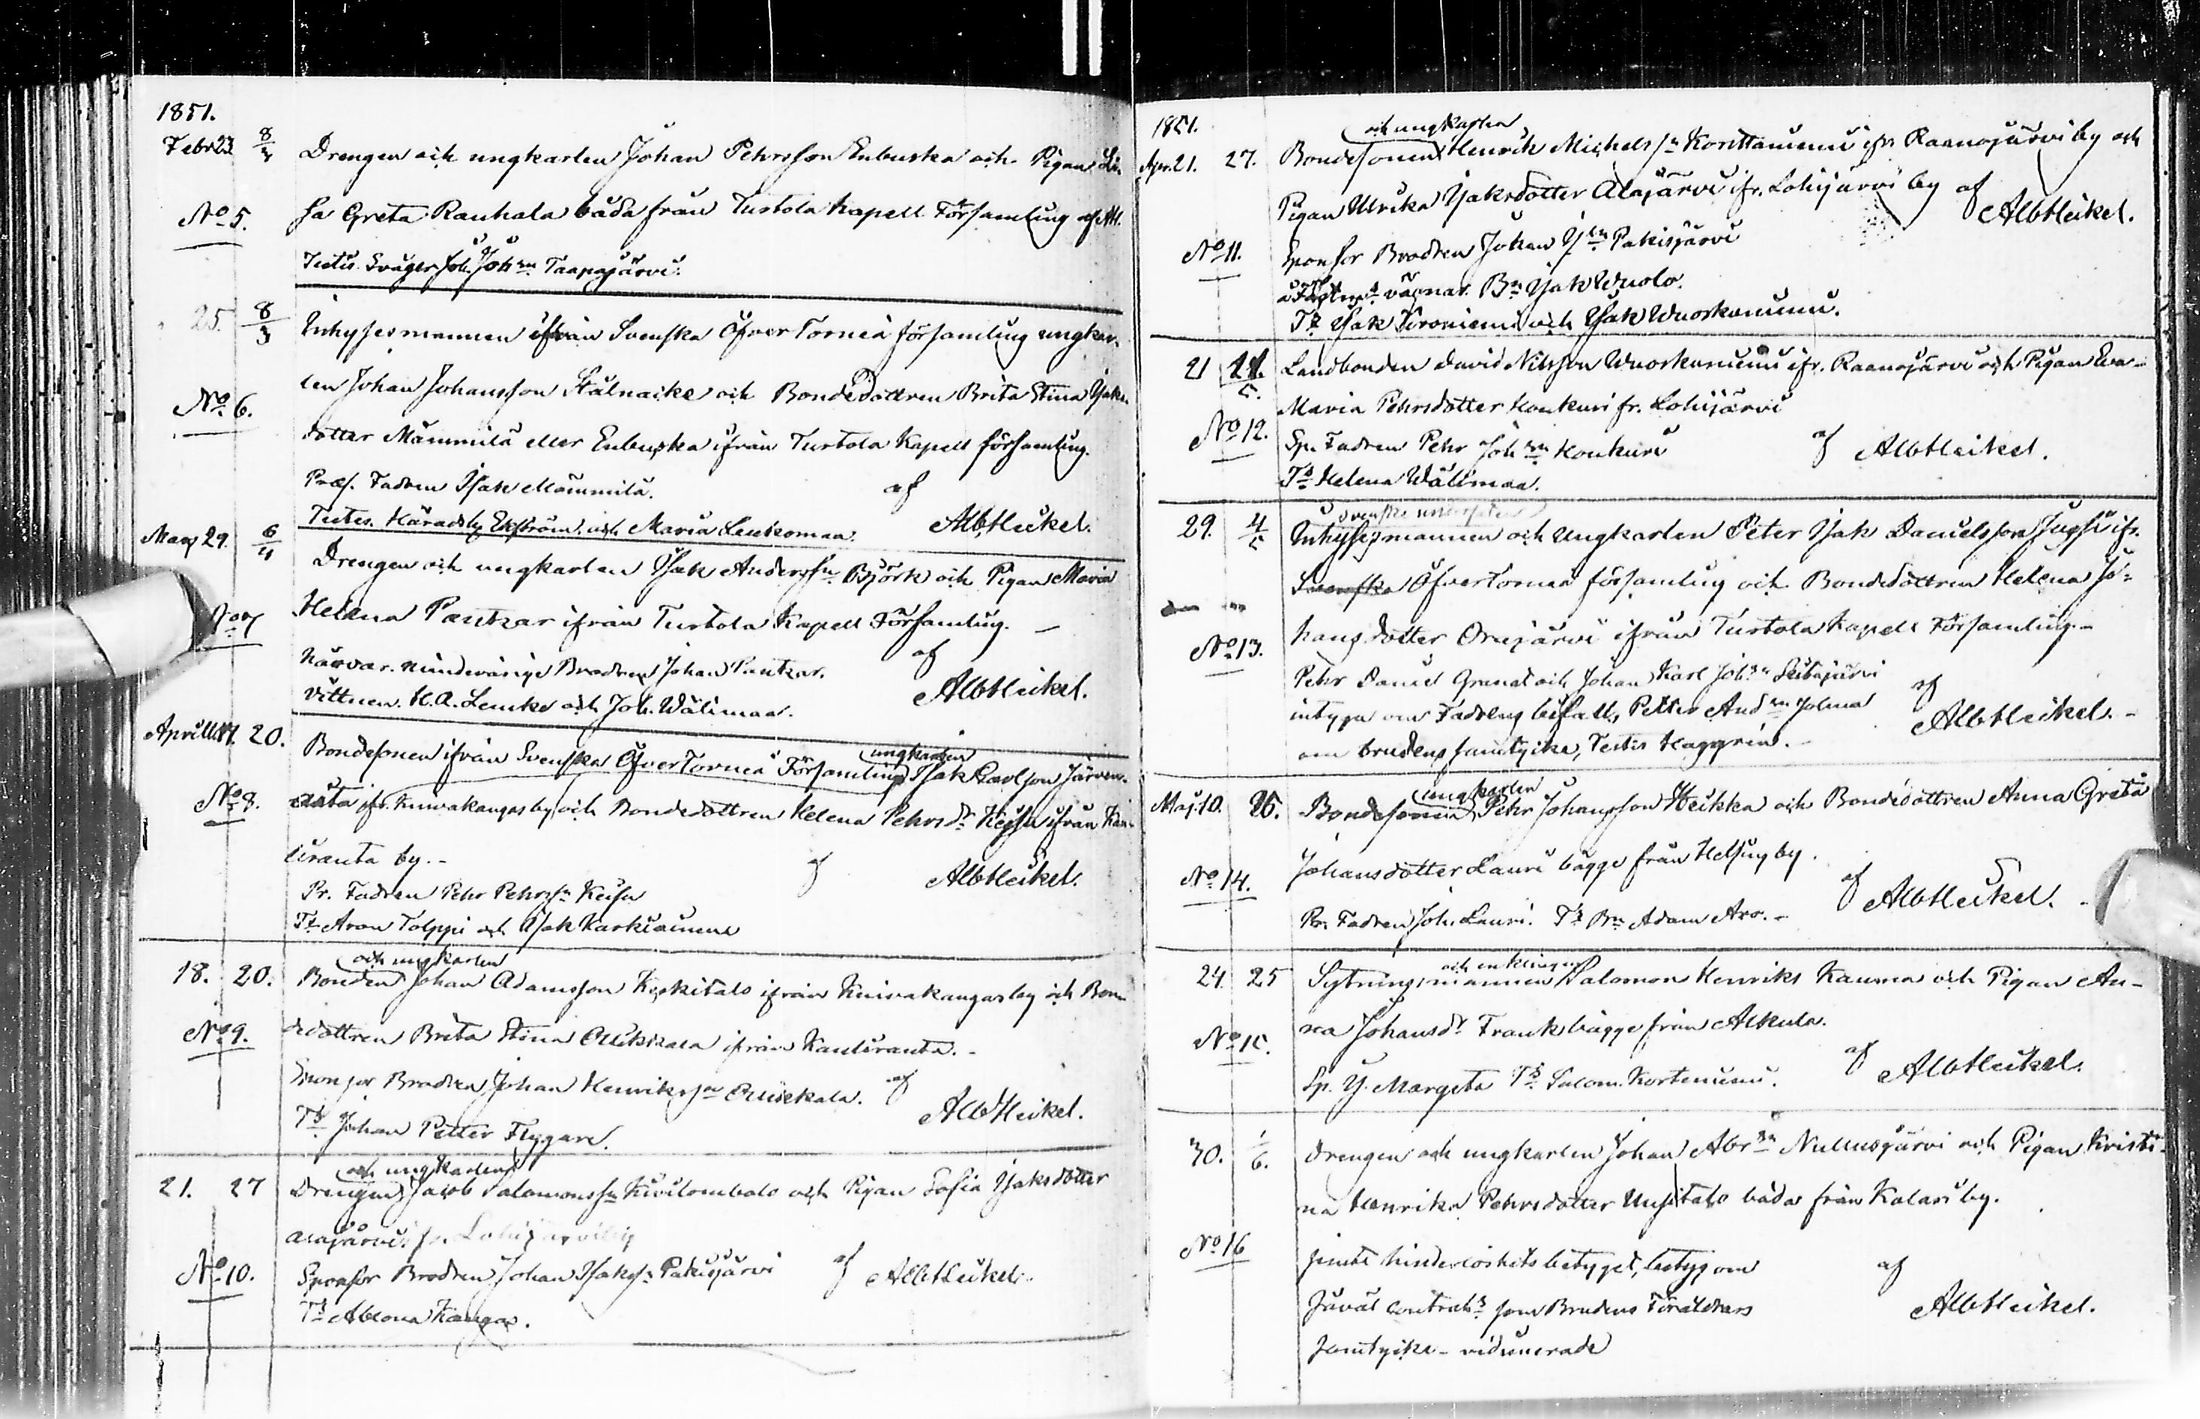 1851.
Febr 23 8/3 Drengen och ungkarlen Johan Pehrsson Eubuska och Pigan Li-
No 5. sa Greta Rauhala båda från Turtola Kapell Församling af AH.
Testis Svåger Joh. Johsn Taapajärvi.
25. 8/3 Inhysesmannen ifrån Svenska Öfver Torneå församling ungkar-
No 6. len Johan Johansson Stålnacke och Bondedottren Brita Stina Isaks
dotter Mämmilä eller Eubuska ifrån Turtola Kapell församling.
Præs. Fadren Isak Mämmilä. af
Testes. Häradsh. Ekström och Maria Leukomaa. AlbHeikel.
Mars 29. 6/4 Drengen och ungkarlen Isak Anderssn Björk och Pigan Maria
No 7 Helena Pantzar ifrån Turtola Kapell Församling. —
Närvar. Brodren Johan Pantzar. af
Vittnen. H. A. Lemke och Joh. Wälimaa. AlbHeikel.
ungkarlen
April 20. Bondesonen ifrån Svenska ÖfverTorneå Församling Isak Carlson Järven-
No 8. ifr. Kuivakangas by och Bondedottren Helena Pehrsdr Keisu ifrån Kau-
liranta by. –
Pr. Fadren Pehr Pehrssn Keisu af AlbHeikel.
Ts Aron Tolppi och Isak Karkiainen
och ungkarlen
18. 20. Bonden Johan Adamsson Koskitalo ifrån Kuivakangasby och Bon-
No 9. dedottren Brita Stina Ollikkala ifrån Kauliranta. –
Sponsor Brodren Johan Henrikssn Ollikkala. af
Ts Johan Petter Flygare. AlbHeikel.
och ungkarlen
21. 27 Drengen Jacob Salomonssn Kivilombolo och Pigan Sofia Isaksdotter
Alajärvi fr. Lohijärvi by
No 10. Sponsor Brodren Johan Isakssn Pakisjärvi af AlbHeikel.
Ts Abiona Kangas.
1851.
och ungkarlen
Apr. 21. 27. Bondesonen Henrik Michelssn Konttaniemi ifr. Raanojärvi by och
Pigan Ulrika Isaksdotter Alajärvi ifr. Lohijärvi by af
AlbHeikel.
No 11. Sponsor Brodren Johan Isn Pakisjärvi
å vägnar Bn Isak Wuolo.
Ts Isak Koroniemi och Isak Wuoskuniemi.
21 Landbonden David Nilsson Wuoskuniemi ifr. Raanojärvi och Pigan Eva
No 12. Maria Pehrsdotter Konkuri fr. Lohijärvi
Sp. Fadren Pehr Johsn Konkuri af AlbHeikel.
Ts Helena Wälimaa.
Svenske undersåten
29. 4/5 Inhysesmannen och Ungkarlen Peter Isak Danielsson Jupsu ifr.
Svenska ÖfverTorneå församling och Bondedottren Helena Jo-
No 13. hansdotter Orajärvi ifrån Turtola Kapell Församling. –
Pehr Daniel Granat och Johan Karl Johsn
intyga om Fadrens bifall, Petter Andsn Jolma af
om brudens samtycke, Testis Haggrén. – AlbHeikel. –
ungkarlen
Maj. 10. 25. Bondesonen Pehr Johansson Heikka och Bondedottren Anna Greta
No 14. Johansdotter Lauri bägge från Helsing by.
Pr. Fadren Joh. Lauri. Ts Bn Adam Aro. – af AlbHeikel. –
och enklingen
24 25 Sytningsmannen Salomon Henriks Kauma och Pigan An-
No 15. na Johansdr Frank bägge från Alkula.
Sp. Y. Margeta Ts Salom. Korteniemi. af AlbHeikel.
30. 1/6. Drengen och ungkarlen Johan Abrsn Nullusjärvi och Pigan Kristi-
na Henrika Pehrsdotter Uusitalo båda från Kolari by.
No 16 jemte hinderlöshets betyget, betyg om
såväl contrahs som Brudens Föräldrars af
samtycke – vidimerade AlbHeikel.